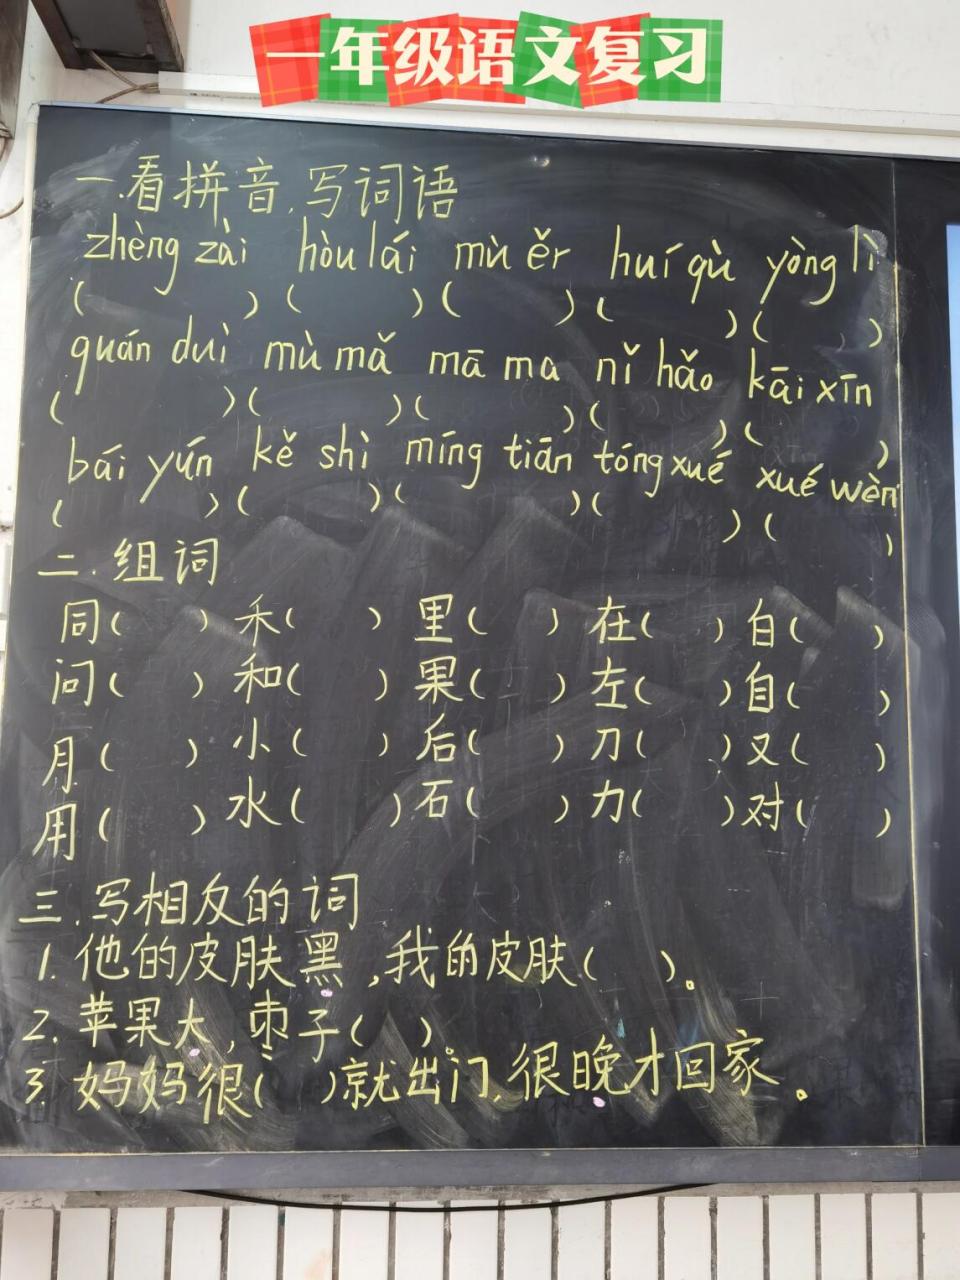 一年级语文复习
一.看拼音,写词语
zhèng zài hòu lái mù ěr huí qù yòng lì
( ) ( ) ( ) ( ) ( )
quán duì mù mǎ mā ma nǐ hǎo kāi xīn
( ) ( ) ( ) ( ) ( )
bái yún kě shì míng tiān tóng xué xué wèn
( ) ( ) ( ) ( ) ( )
二.组词
同( ) 禾( ) 里( ) 在( ) 白( )
问( ) 和( ) 果( ) 左( ) 自( )
月( ) 小( ) 后( ) 刀( ) 又( )
用( ) 水( ) 石( ) 力( ) 对( )
三.写相反的词
1. 他的皮肤黑,我的皮肤( )。
2. 苹果大,枣子( )。
3. 妈妈很( )就出门,很晚才回家。